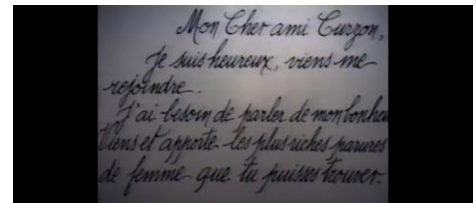 Mon Cher ami Curzon,
Je suis heureux, viens me
rejoindre.
J'ai besoin de parler de mon bonheu
Viens et apporte les plus riches parures
de femme que tu puisses trouver.